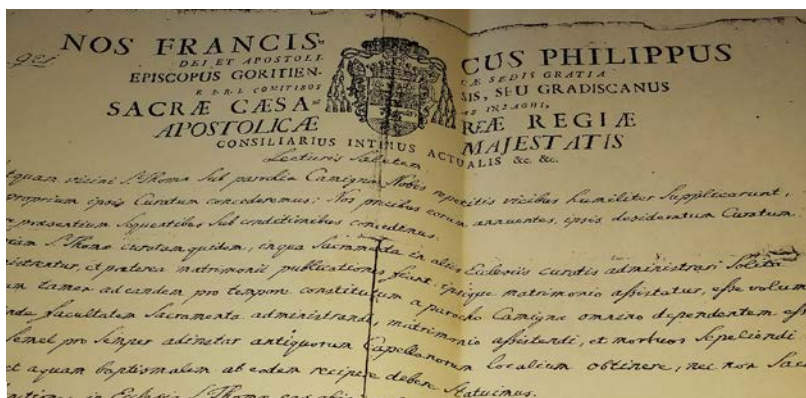 ges
NOS FRANCIS= CUS PHILIPPUS
DEI ET APOSTOLI- CÆ SEDIS GRATIA
EPISCOPUS GORITIEN- SIS, SEU GRADISCANUS
S. R. I. COMITIBUS AB INZAGHI,
SACRÆ CÆSA= REÆ REGIÆ
APOSTOLICÆ MAJESTATIS
CONSILIARIUS INTIMUS ACTUALIS &c. &c.
Lecturis Salutem
quam vicini S. Thoma sub parochia Camigna Nobis repetitis vicibus humiliter supplicarunt,
proprium ipsis Curatum concederemus; Nos precibus eorum annuentes, ipsis desideratum Curatum,
præsentium sequentibus sub conditionibus concedimus.
S. Thoma curatam quidem, in qua Sacramenta in aliis Ecclesiis curatis administrari solita
istrentur, et præterea matrimonii publicationes fiant, ipsique matrimonio assistatur, esse volum
um tamen ad eandem pro tempore constitutum a parocho Camigna omnino dependentem ess
inde facultatem Sacramenta administrandi, matrimonio assistendi, et mortuos sepeliendi
semel pro semper ad instar antiquorum Capellanorum localium obtinere, nec non Sac
et aquam baptismalem ab eodem recipere debere statuimus.
in Ecclesia S. Thoma